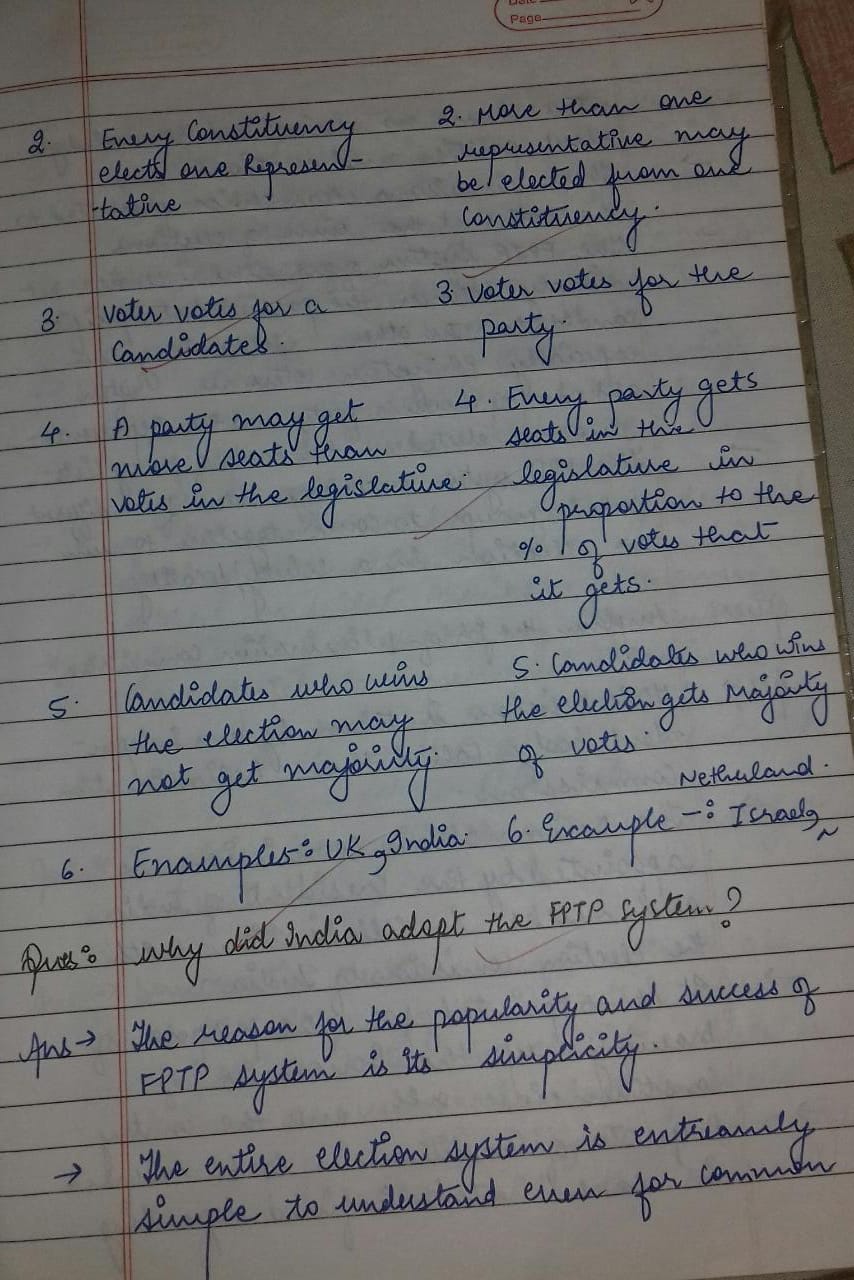 Date
Page
2. Every Constituency
elects one Represen-
-tative
2. More than one
representative may
be elected from one
Constituency.
3. Voter votes for a
Candidates.
3. Voter votes for the
party.
4. A party may get
more seats than
votes in the legislature.
4. Every party gets
seats in the
legislature in
proportion to the
% of votes that
it gets.
5. Candidates who wins
the election may
not get majority.
5. Candidates who wins
the election gets Majority
of votes.
6. Examples-: UK, India.
Netherland.
6. Example -: Israel,
Ques: why did India adopt the FPTP system?
Ans → The reason for the popularity and success of
FPTP system is its simplicity.
→ The entire election system is entreamly
simple to understand even for common